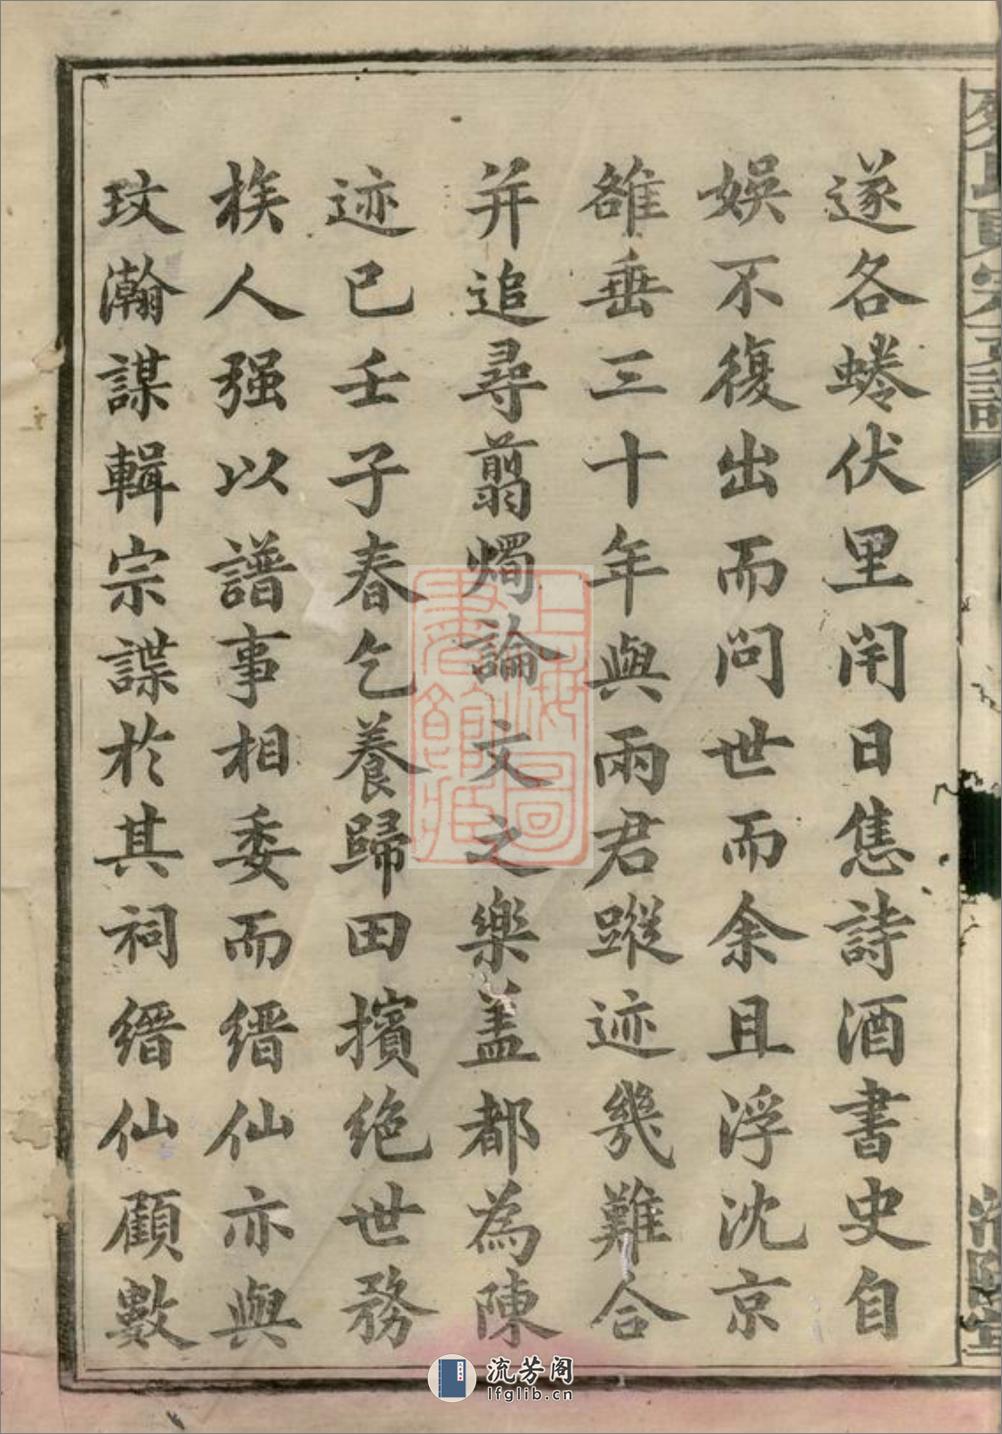 遂各蜷伏里閈日惟詩酒書史自
娛不復出而問世而余且浮沈京
雒垂三十年與兩君蹤迹幾難合
并追尋翦燭論文之樂盖都為陳
迹已壬子春乞養歸田擯絶世務
族人强以譜事相委而縉仙亦與
玟瀚謀輯宗諜於其祠縉仙顧數
上海圖書館藏
流芳阁
lfglib.cn